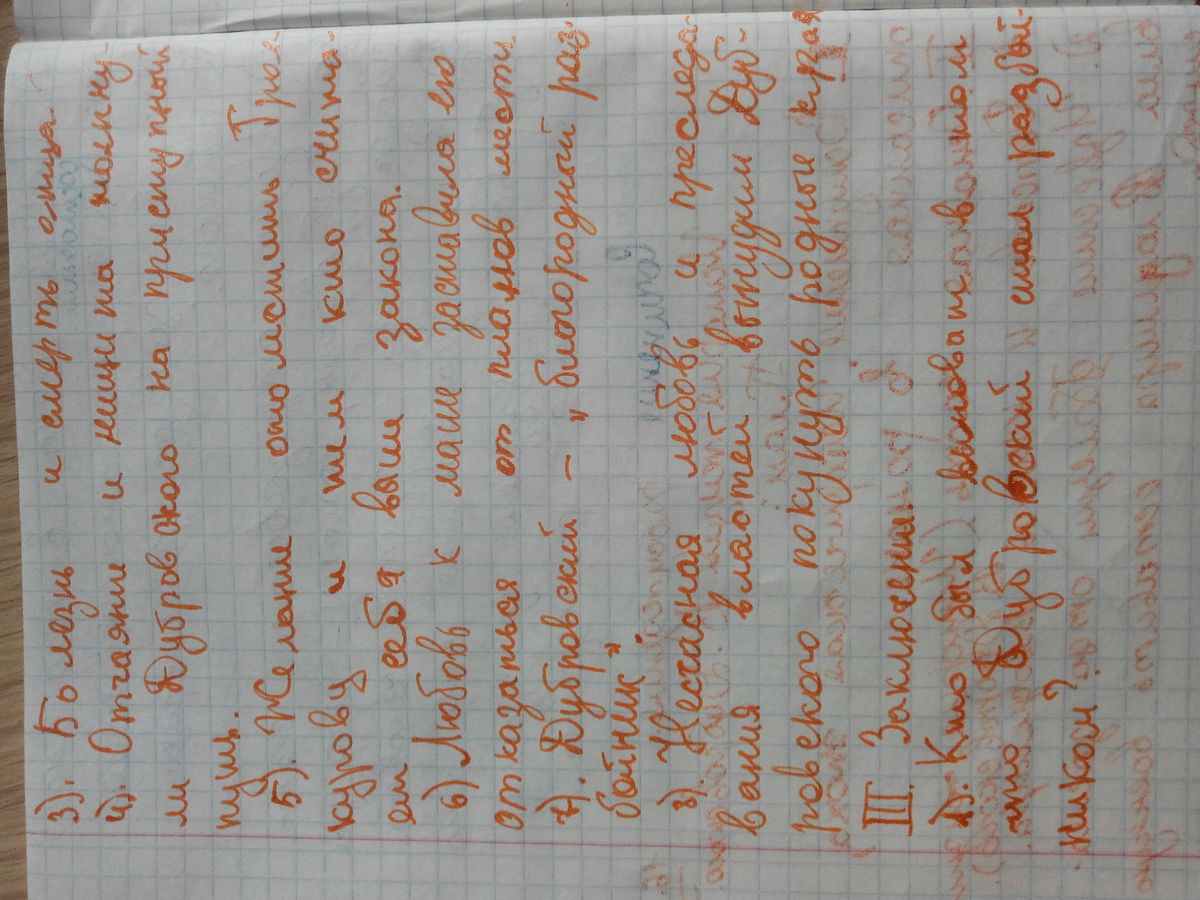 3). Болезнь и смерть отца.
4). Отчаяние и нищита толкну-
ли Дубровского на приступный
путь.
5). Желание отомстить Трое-
курову и тем кто счита-
ет себя выше закона.
6) Любовь к маше заставила его
отказаться от планов мести
7). Дубровский – „благородный раз-
бойник"
8). Несчасная любовь и преследо-
вания властей вынудили Дуб-
ровского покунуть родные края
III. Заключение.
1). Кто был виноват в том
что Дубровский стал разбой-
ником?